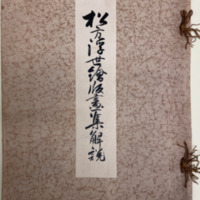 松方浮世繪版畫集解説